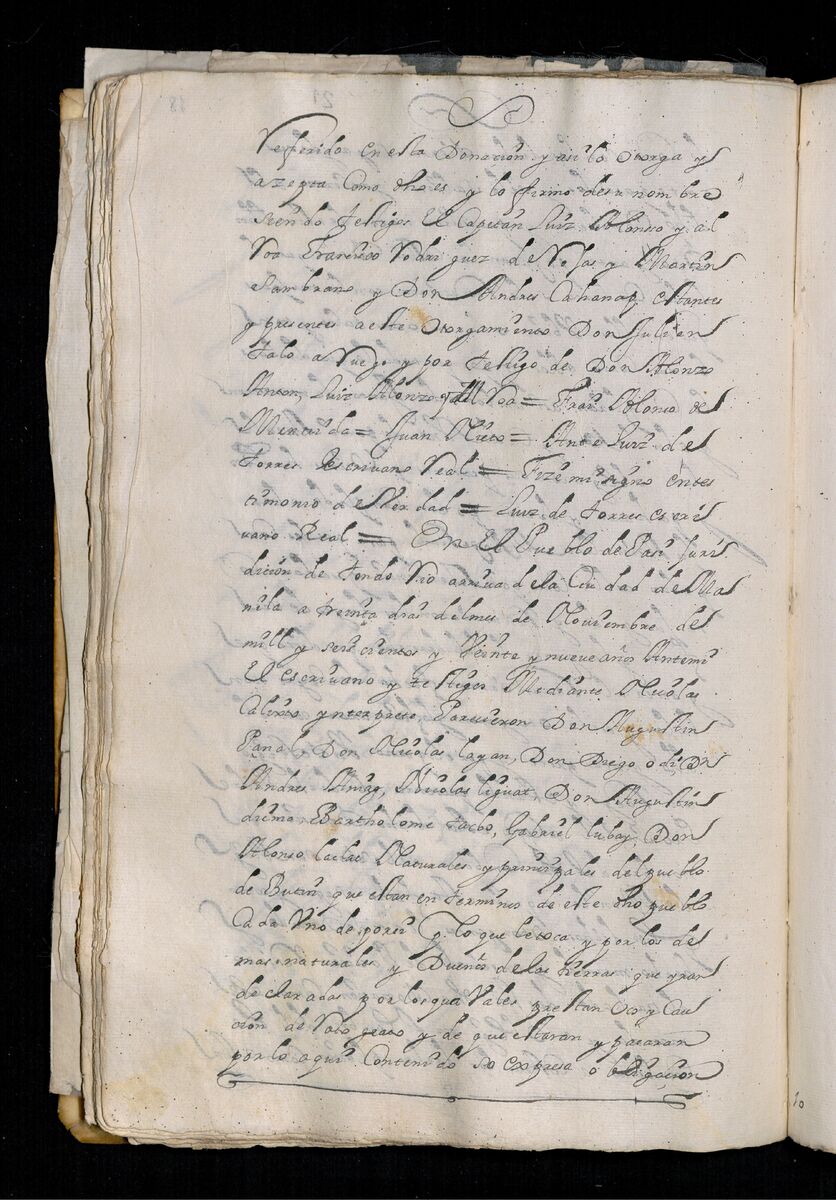 referido en esta Donacion y asi lo otorga y
azepta como dho es y lo firmo de su nombre
siendo testigos El Capitan Luiz Alonso y al
Roa Francisco Rodriguez de Rojas y Martin
Sambrano y Don Andres Cahanap estantes
y presentes a este otorgamiento Don Julian
Talo a Ruego y por testigo de Don Alonzo
Anton, Luiz Alonzo y Roa = Frai Alonso de
Mentrida = Juan Nieto = Ante Luiz de
Torres Escriuano Real = Fize mi signo en tes
timonio de Verdad = Luiz de Torres escri
uano Real = En El Pueblo de Pasi Juri
dicion de Tondo Rio arriua de la Ciudad de Ma
nila a treinta dias del mes de Nouiembre de
mill y seiscientos y Veinte y nueue años Antemi
El escriuano y testigos Mediante Nicolas
Calixto ynterprete, Parecieron Don Augustin
Panal, Don Nicolas layan, Don Diego odi Dn
Andres Amag, Nicolas liguat, Don Augustin
dimar Bartholome Tacbo, Gabriel lubay, Don
Alonso laclac Naturales y prinzipales del pueblo
de Butin que estan en terminos de este dho pueblo
Cada Uno de por si y lo que le toca y por los de
mas naturales y Dueños de las tierras que yran
declaradas por los quales prestan Uoz y Cau
cion de Rato grato y de que estaran y pasaran
por lo aqui Contenido so expresa obligacion